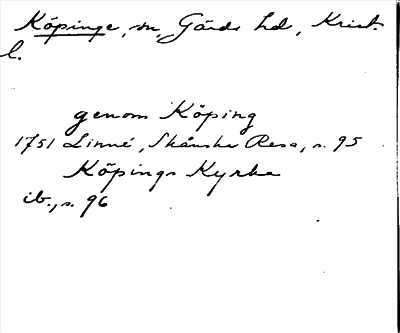 Köpinge, sn, Gärds hd, Krist.
l.
genom Köping
1751 Linné, Skånska Resa, s. 95
Köpings Kyrka
ib., s. 96